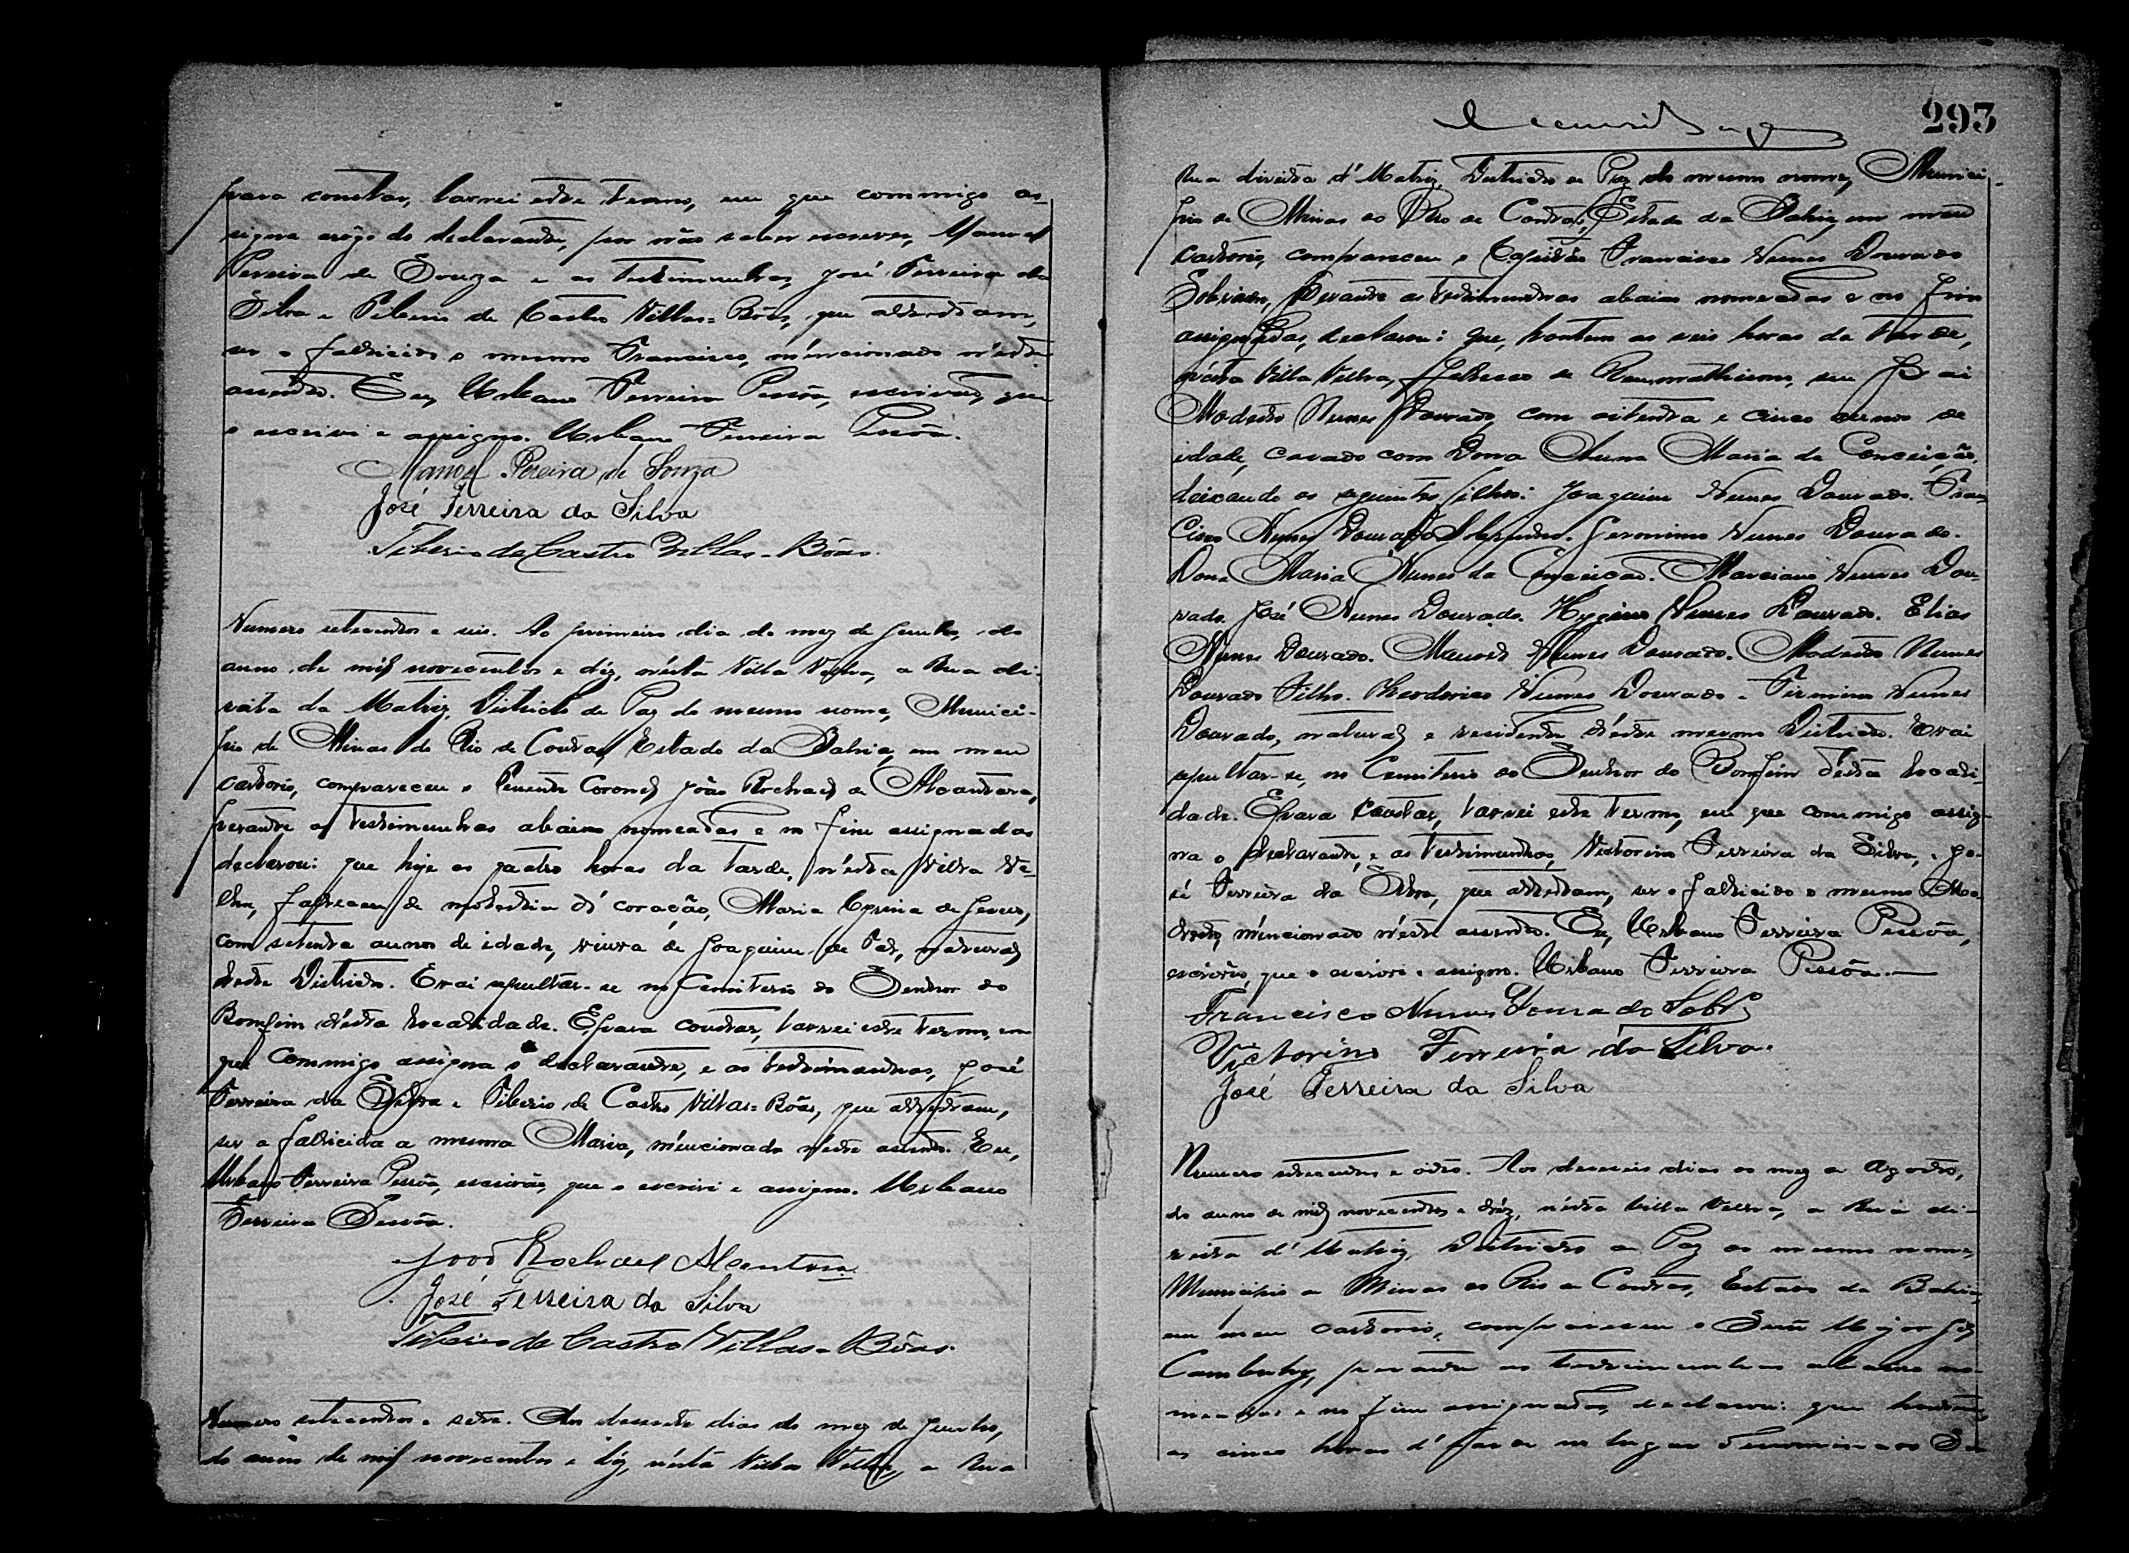 para constar, lavrei este termo, em que commigo as-
signa a rôgo do declarante, por não saber escrever, Manoel
Pereira de Souza e as testimunhas, José Ferreira da
Silva e Tiberio de Castro Villas-Bôas, que attestam,
ser o fallicido o mesmo Francisco, mencionado n'este
assento. Eu, Urbano Ferreira Pessôa, escrivão, que
o escrivi e assigno. Urbano Ferreira Pessôa.
Manoel Pereira de Souza
José Ferreira da Silva
Tiberio de Castro Villas-Bôas.
Numero setecentos e seis. Ao primeiro dia do mez de Junho, do
anno de mil novecentos e déz, n'ésta Villa Velha, a Rua di-
reita da Matriz, Districto de Paz do mesmo nome, Munici-
pio de Minas do Rio de Contas, Estado da Bahia, em meu
cartorio, compareceu o Tenente Coronel João Rochael de Alcantara,
perante as testimunhas abaixo nomeadas e no fim assignadas
declarou: que hoje as quatro horas da tarde, n'ésta Villa Ve-
lha, falleceu de molestia do coração, Maria de Jesus,
com setenta annos de idade, viuva de Joaquim de Tal, natural
deste Districto. E vai sepultar-se no Cemiterio do Senhor do
Bomfim d'ésta localidade. E para constar, lavrei este termo, em
que commigo assigna o declarante, e as testimunhas, José
Ferreira da Silva e Tiberio de Castro Villas-Bôas, que attestam,
ser a fallicida a mesma Maria, mencionada n'este assento. Eu,
Urbano Ferreira Pessôa, escrivão, que o escrivi e assigno. Urbano
Ferreira Pessôa.
João Rochael Alcantara
José Ferreira da Silva
Tiberio de Castro Villas-Bôas.
Numero setecentos e sete. Aos dias do mez de Junho,
do anno de mil novecentos e déz, n'ésta Villa Velha, a Rua
293
Rua direita d'Matriz, Districto de Paz do mesmo nome, Munici-
pio de Minas do Rio de Contas, Estado da Bahia, em meu
cartorio, compareceu o Capitão Francisco Nunes Dourado
Sobrinho, perante as testimunhas abaixo nomeadas e no fim
assignadas, declarou: que, hontem as seis horas da tarde,
n'ésta Villa Velha, falleceu de Rheumathismo, seu Pai
Modesto Nunes Dourado, com oitenta e cinco annos de
idade, casado com Dona Anna Maria da Conceição,
deixando os seguintes filhos: Joaquim Nunes Dourado. Fran-
cisco Nunes Dourado Sobrinho. Jeronimo Nunes Dourado.
Dona Maria Nunes da Conceição. Marciano Nunes Dou-
rado. José Nunes Dourado. Hygino Nunes Dourado. Elias
Nunes Dourado. Manoel Nunes Dourado. Modesto Nunes
Dourado Filho. Theodorico Nunes Dourado e Firmino Nunes
Dourado, natural e residente d'éste mesmo Districto. E vai
sepultar-se, no Cemiterio do Senhor do Bomfim d'ésta locali-
dade. E para constar, lavrei este termo, em que commigo assig-
na o declarante, e as testimunhas, Victorino Ferreira da Silva, e Jo-
sé Ferreira da Silva, que attestam, ser o fallicido o mesmo Mo-
desto, mencionado n'éste assento. Eu, Urbano Ferreira Pessôa,
escrivão, que o escrivi e assigno. Urbano Ferreira Pessôa.
Francisco Nunes Dourado Sobr.º
Victorino Ferreira da Silva.
José Ferreira da Silva
Numero setecentos e oito. Aos dezeseis dias do mez de Agosto,
do anno de mil novecentos e déz, n'ésta Villa Velha, a Rua di-
reita d'Matriz, Districto de Paz do mesmo nome,
Municipio de Minas do Rio de Contas, Estado da Bahia,
em meu cartorio, compareceu o Major
perante as testimunhas abaixo no-
meadas e no fim assignadas, declarou: que hontem,
as cinco horas d'tarde no lugar denominado